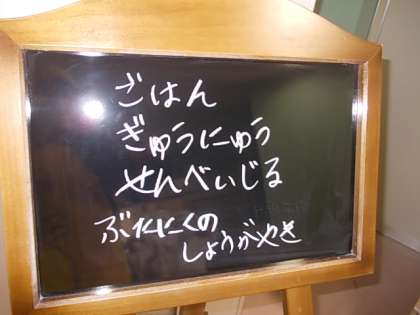 ごはん
ぎゅうにゅう
せんべいじる
ぶたにくの
しょうがやき